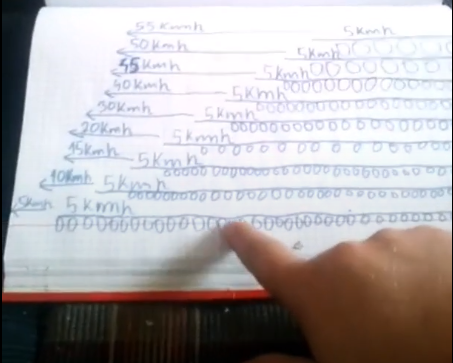 55 Kmmh 5Kmh
50Kmh 5Kmh
45Kmh 5Kmh
40Kmh 5Kmh
30Kmh 5Kmh
20Kmh 5Kmh
15Kmh 5Kmh
10Kmh 5Kmh
5Kmh 5Kmh